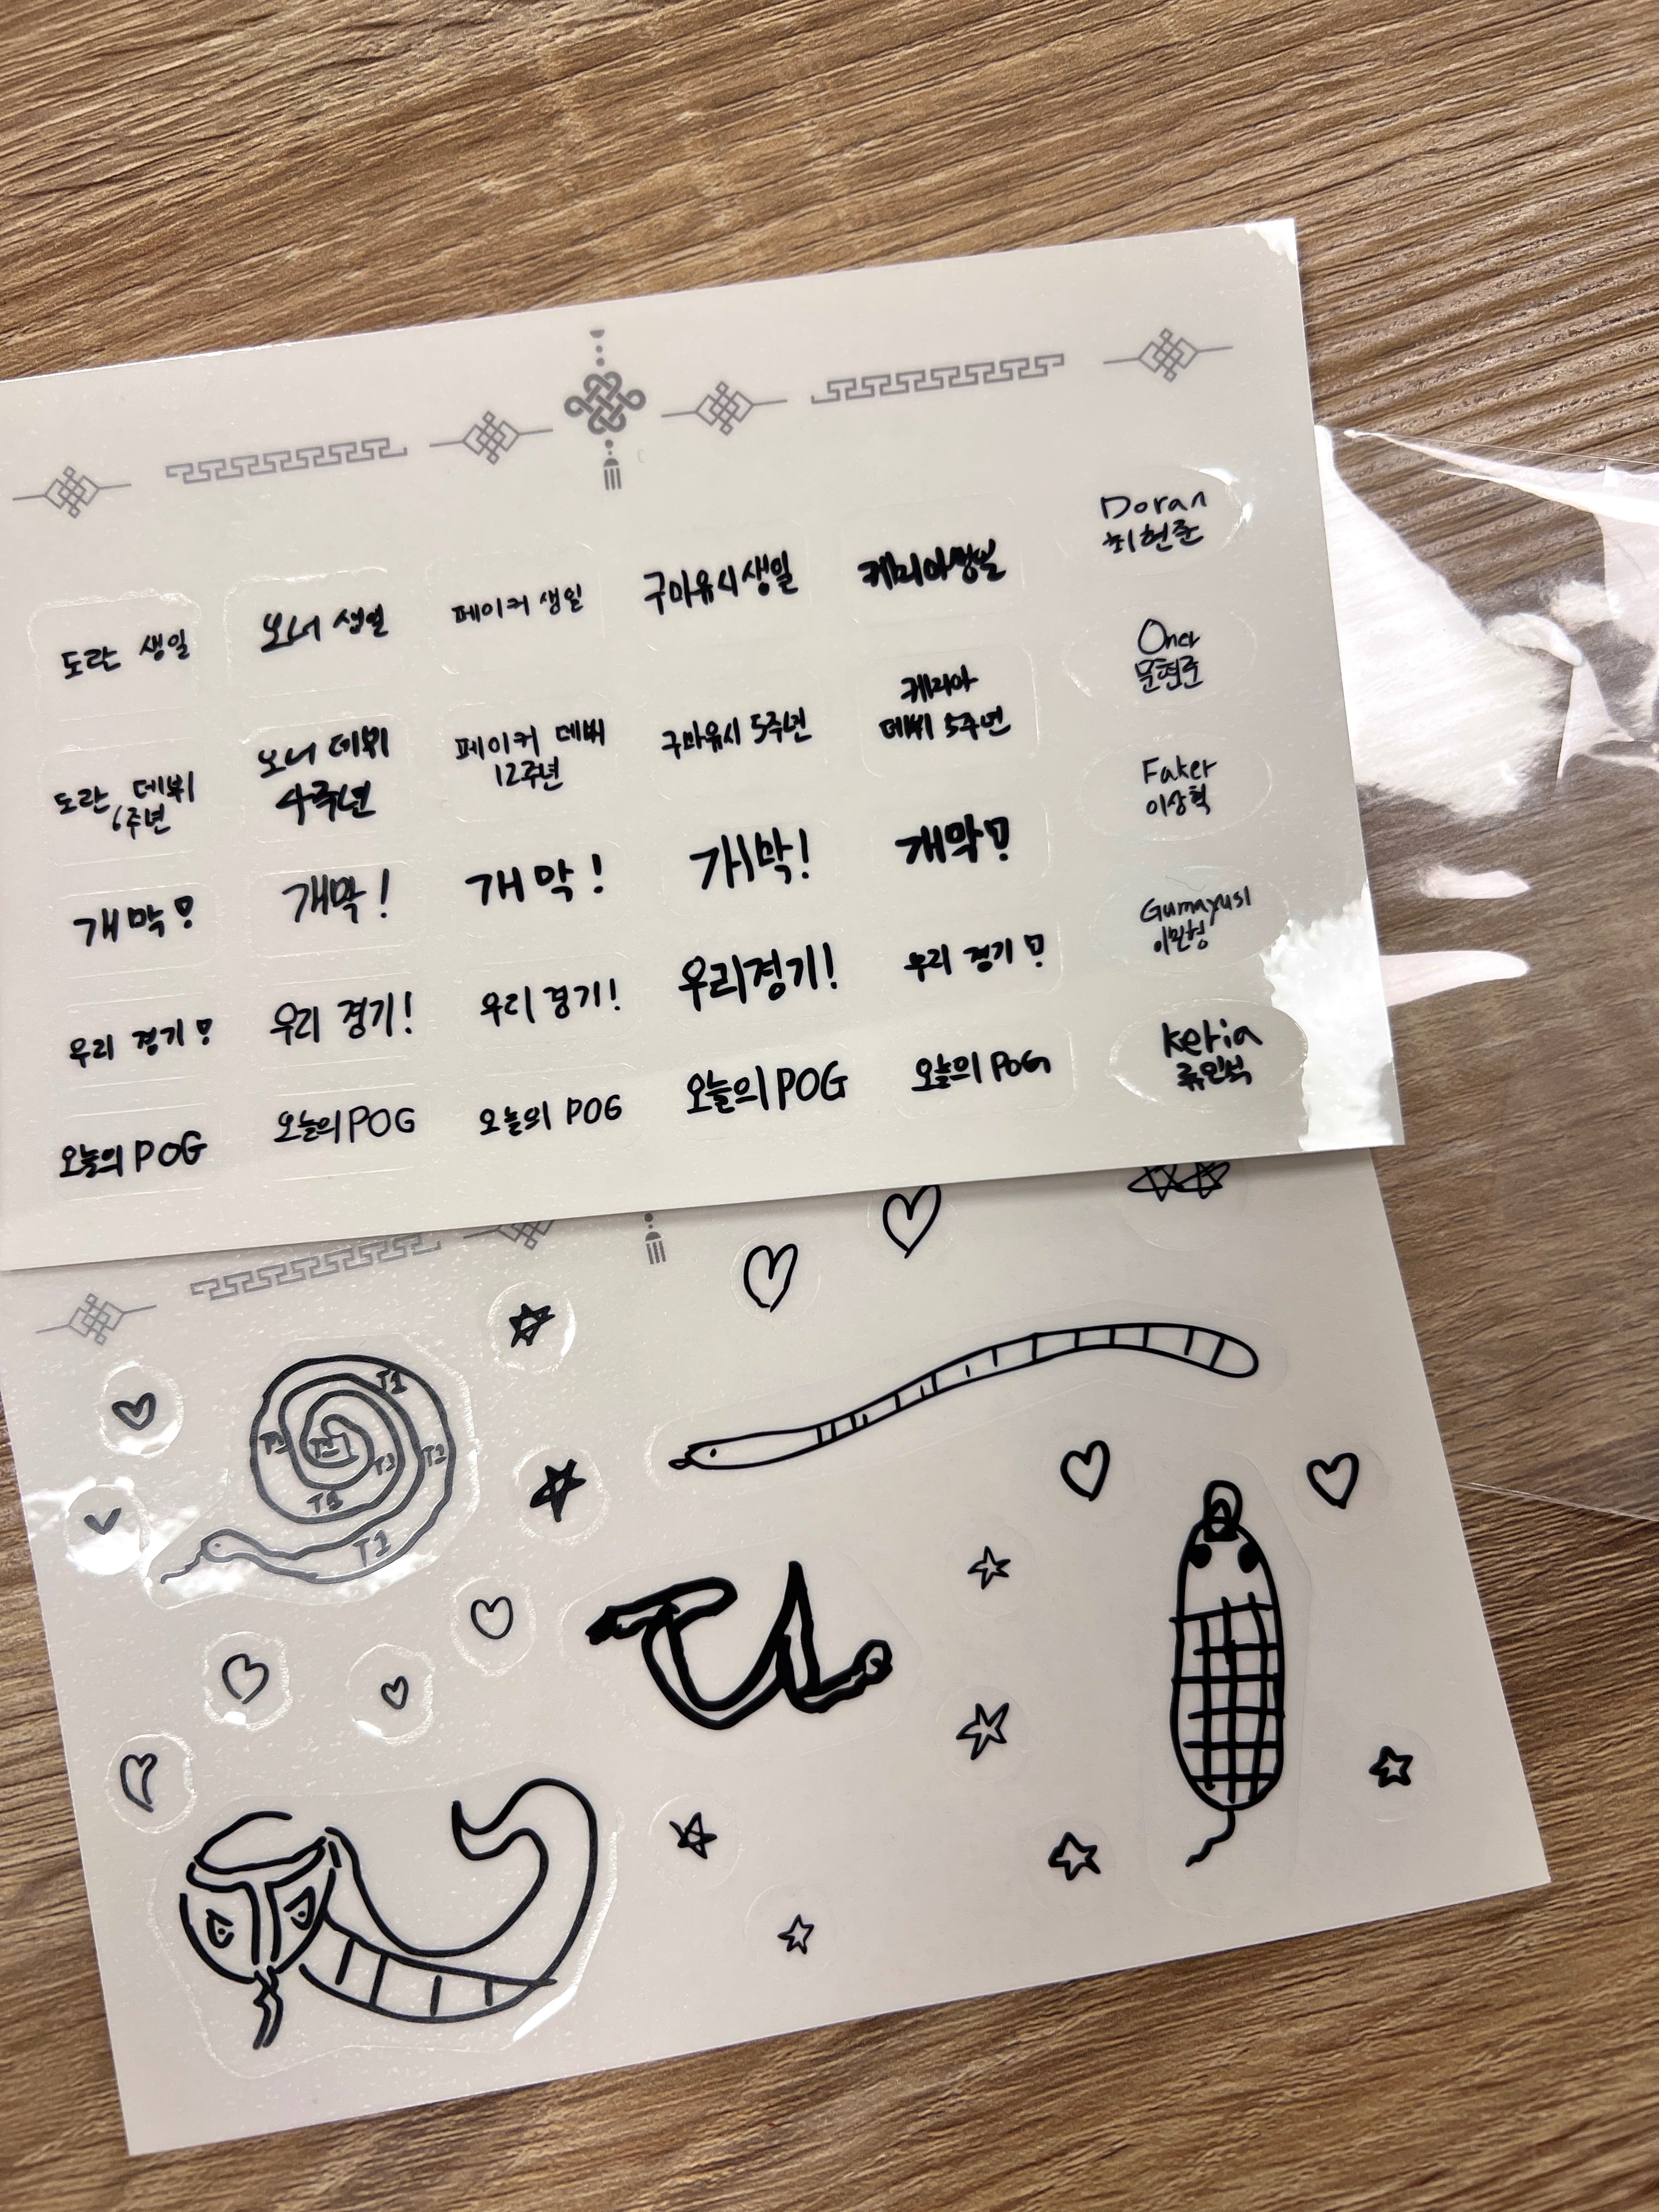 도란 생일
오너 생일
페이커 생일
구마유시 생일
케리아 생일
Doran
최현준
도란 데뷔
6주년
오너 데뷔
4주년
페이커 데뷔
12주년
구마유시 5주년
케리아
데뷔 5주년
Oner
문현준
개막!
개막!
개막!
개막!
개막!
Faker
이상혁
우리 경기!
우리 경기!
우리 경기!
우리경기!
우리 경기!
Gumayusi
이민형
오늘의 POG
오늘의 POG
오늘의 POG
오늘의 POG
오늘의 POG
Keria
류민석
T1
T1
T1
T1
T1
T1
T1